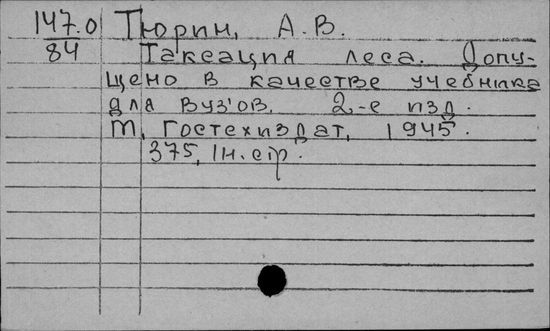 147.0 Тюрин, А.В.
84 Таксация леса. Допу-
щено в качестве учебника
для вуз'ов. 2-е изд.
М, Гостехиздат, 1945.
375, 1н. стр.